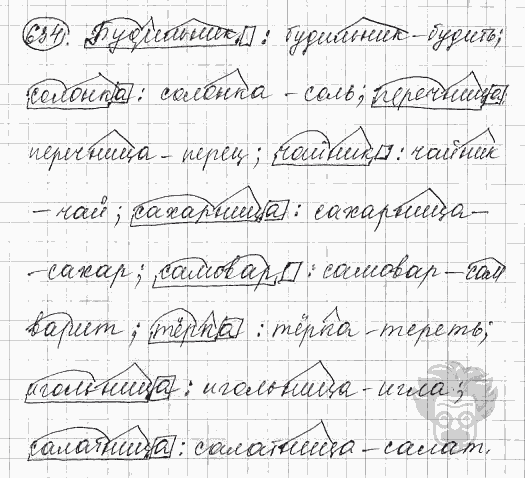 634. Будильник : будильник - будить;
солонка : солонка - соль; перечница
перечница - перец; чайник : чайник
- чай; сахарница : сахарница -
- сахар; самовар : самовар - сам
варит; тёрка : тёрка - тереть;
игольница : игольница - игла;
салатница : салатница - салат.